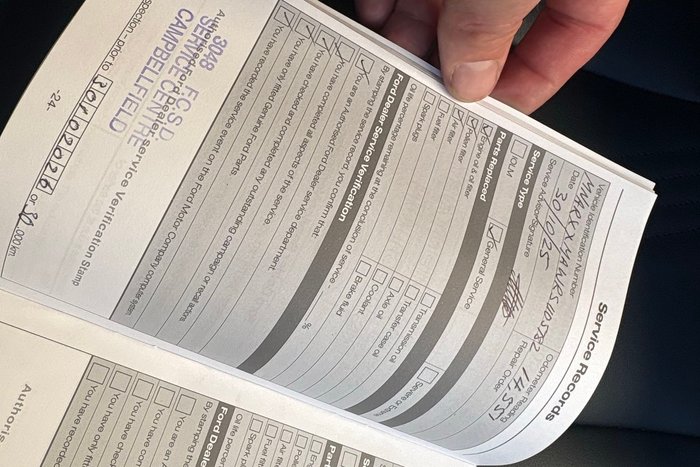 Service Records
Vehicle Identification Number
Odometer Reading
14551
Date
Repair Order
30/10/25
Service Advisor signature
Service Type
ICM
General Service
Severe or Extreme
Parts Replaced
Engine oil & filter
Transmission oil
Pollen filter
Transfer case oil
Air filter
Axle oil
Fuel filter
Coolant
Spark plugs
Brake fluid
Oil life percentage remaining at the conclusion of service
%
Ford Dealer Service Verification
By stamping the service record, you confirm that:
You are an Authorised Ford Dealer service department
You have completed all aspects of the service
You have checked and completed any outstanding campaign or recall actions
You have only fitted Genuine Ford Parts
You have recorded the service event on the Ford Motor Company computer system
3048 F.C.S.D.
SERVICE CENTRE
CAMPBELLFIELD
Authorised Ford Dealer service Verification Stamp
spection – prior to
or 30 ,000 km
-24-
Service
Parts
En
Po
Air filte
Fuel filt
Spark pl
Oil life percen
Ford Deale
By stamping the
You are an A
You have co
You have che
You have only fitt
You have recorde
Authoris